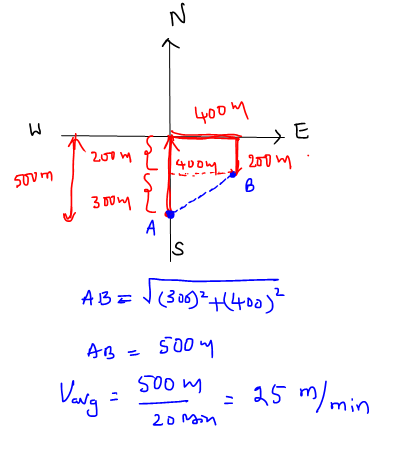 N
400m
W
E
200m
400m
200m
500m
300m
B
A
S
AB = √(300)²+(400)²
AB = 500m
Vavg = 500 m / 20 min = 25 m/min